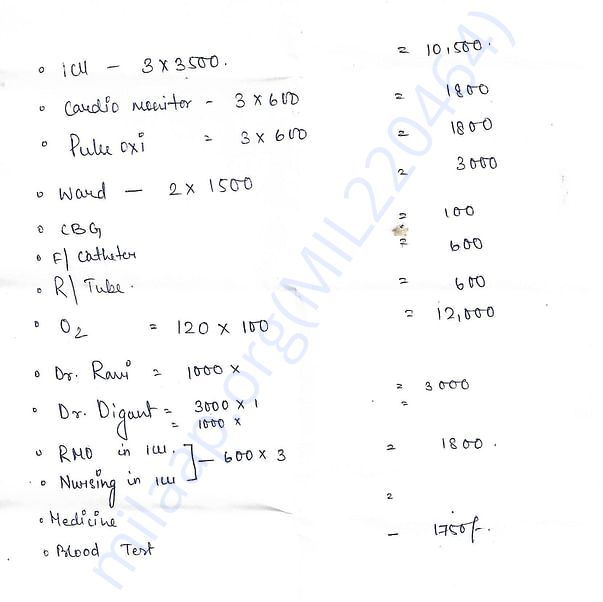 • ICU - 3 x 3500. = 10,500.
• Cardio monitor - 3 x 600 = 1800
• Pulse oxi = 3 x 600 = 1800
• Ward - 2 x 1500 = 3000
• CBG = 100
• F/ Catheter = 600
• R/ Tube. = 600
• O2 = 120 x 100 = 12,000
• Dr. Ravi = 1000 x
• Dr. Digant = 3000 x 1 = 3000
= 1000 x =
• RMO in ICU. ] - 600 x 3 = 1800.
• Nursing in ICU
• Medicine =
• Blood Test - 1750/-
milaap.org(MIL220464)